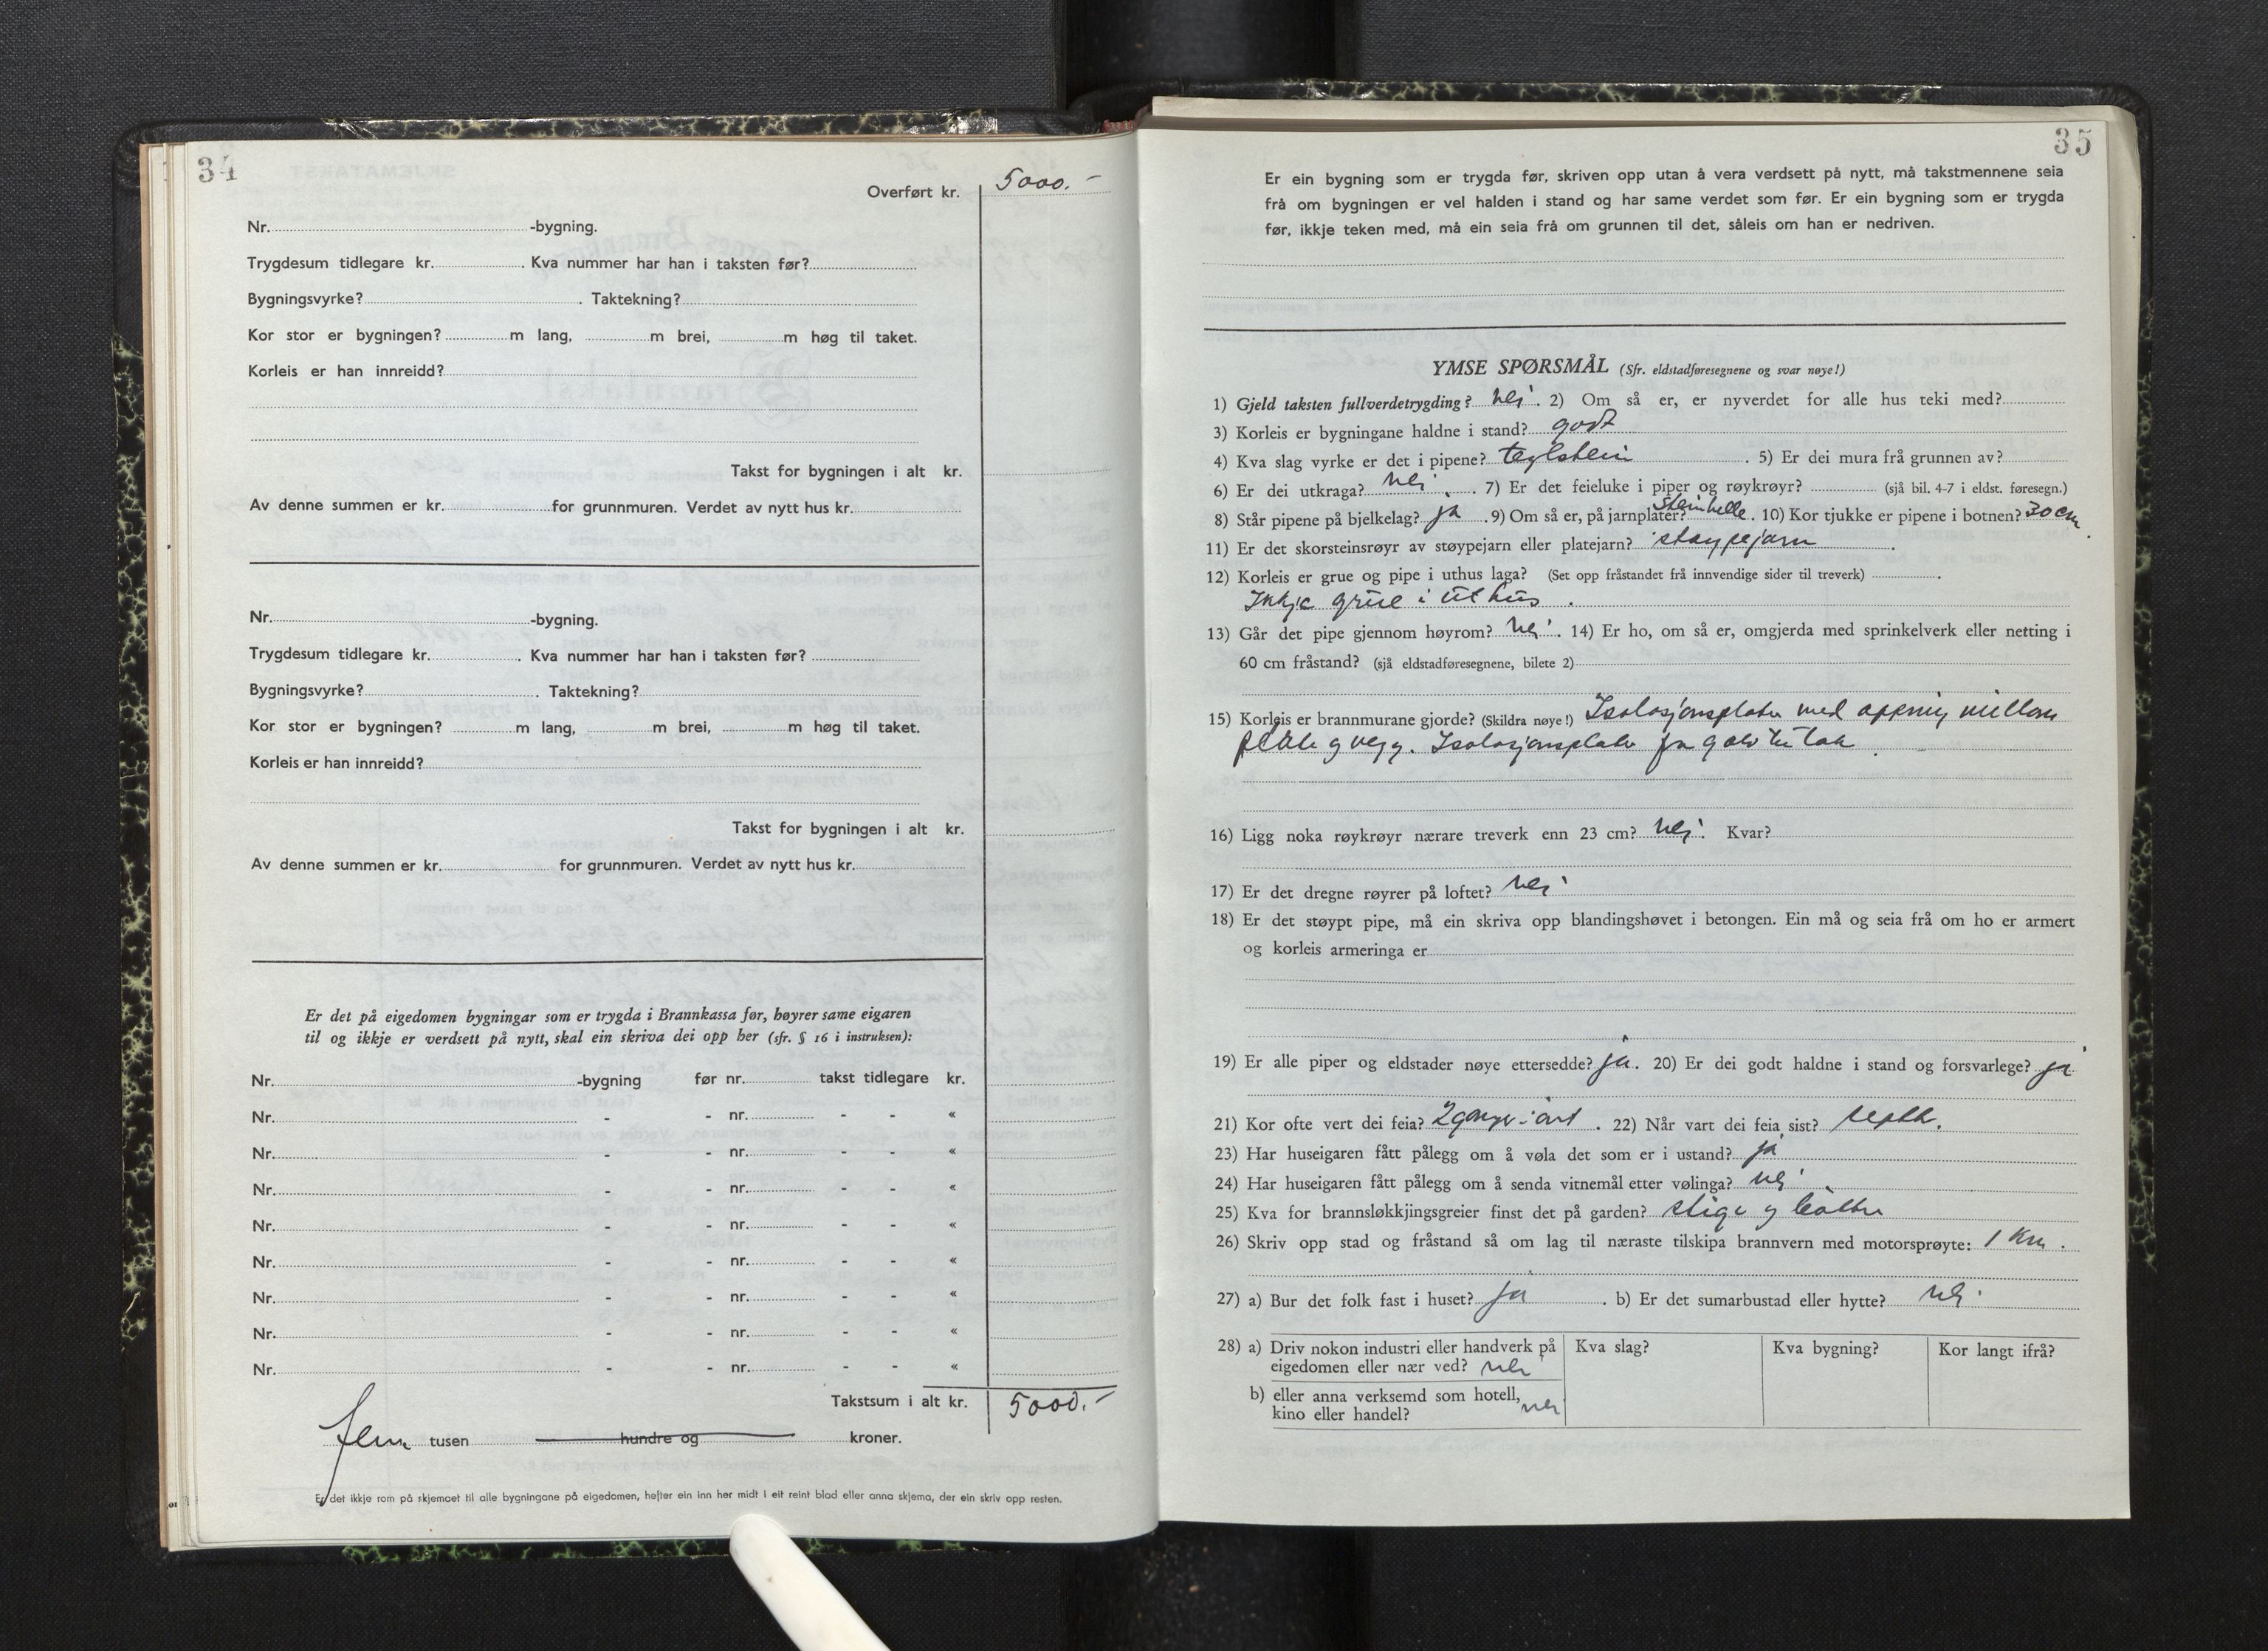 34
Overført kr. 5000.-
Nr. -bygning.
Trygdesum tidlegare kr. . Kva nummer har han i taksten før?
Bygningsvyrke? . Taktekning?
Kor stor er bygningen? m lang, m brei, m høg til taket.
Korleis er han innreidd?
Takst for bygningen i alt kr.
Av denne summen er kr. for grunnmuren. Verdet av nytt hus kr.
Nr. -bygning.
Trygdesum tidlegare kr. . Kva nummer har han i taksten før?
Bygningsvyrke? . Taktekning?
Kor stor er bygningen? m lang, m brei, m høg til taket.
Korleis er han innreidd?
Takst for bygningen i alt kr.
Av denne summen er kr. for grunnmuren. Verdet av nytt hus kr.
Er det på eigedomen bygningar som er trygda i Brannkassa før, høyrer same eigaren
til og ikkje er verdsett på nytt, skal ein skriva dei opp her (sfr. § 16 i instruksen):
Nr. -bygning før nr. takst tidlegare kr.
Nr. - - nr. - - «
Nr. - - nr. - - «
Nr. - - nr. - - «
Nr. - - nr. - - «
Nr. - - nr. - - «
Nr. - - nr. - - «
Nr. - - nr. - - «
Nr. - - nr. - - «
Takstsum i alt kr. 5000.-
Fem tusen hundre og kroner.
Er det ikkje rom på skjemaet til alle bygningane på eigedomen, hefter ein inn her midt i eit reint blad eller anna skjema, der ein skriv opp resten.
35
Er ein bygning som er trygda før, skriven opp utan å vera verdsett på nytt, må takstmennene seia
frå om bygningen er vel halden i stand og har same verdet som før. Er ein bygning som er trygda
før, ikkje teken med, må ein seia frå om grunnen til det, såleis om han er nedriven.
YMSE SPØRSMÅL (Sfr. eldstadføresegnene og svar nøye!)
1) Gjeld taksten fullverdetrygding? nei. 2) Om så er, er nyverdet for alle hus teki med?
3) Korleis er bygningane haldne i stand? godt
4) Kva slag vyrke er det i pipene? teglstein . 5) Er dei mura frå grunnen av?
6) Er dei utkraga? nei . 7) Er det feieluke i piper og røykrøyr? (sjå bil. 4-7 i eldst. føresegn.)
8) Står pipene på bjelkelag? ja . 9) Om så er, på jarnplater? Steinhelle . 10) Kor tjukke er pipene i botnen? 30 cm.
11) Er det skorsteinsrøyr av støypejarn eller platejarn? støypejarn .
12) Korleis er grue og pipe i uthus laga? (Set opp fråstandet frå innvendige sider til treverk) .
Inkje grue i uthus .
13) Går det pipe gjennom høyrom? nei . 14) Er ho, om så er, omgjerda med sprinkelverk eller netting i
60 cm fråstand? (sjå eldstadføresegnene, bilete 2)
15) Korleis er brannmurane gjorde? (Skildra nøye!) Isolasjonsplater med opning millom
plate og vegg. Isolasjonsplater fra golv til tak .
16) Ligg noka røykrøyr nærare treverk enn 23 cm? nei. Kvar?
17) Er det dregne røyrer på loftet? nei
18) Er det støypt pipe, må ein skriva opp blandingshøvet i betongen. Ein må og seia frå om ho er armert
og korleis armeringa er
19) Er alle piper og eldstader nøye ettersedde? ja. 20) Er dei godt haldne i stand og forsvarlege? ja
21) Kor ofte vert dei feia? 2 gonger i året . 22) Når vart dei feia sist? septbr.
23) Har huseigaren fått pålegg om å vøla det som er i ustand? ja
24) Har huseigaren fått pålegg om å senda vitnemål etter vølinga? nei
25) Kva for brannsløkkjingsgreier finst det på garden? stige og bøtter
26) Skriv opp stad og fråstand så om lag til næraste tilskipa brannvern med motorsprøyte: 1 km.
27) a) Bur det folk fast i huset? ja . b) Er det sumarbustad eller hytte? nei
28) a) Driv nokon industri eller handverk på
eigedomen eller nær ved? nei
Kva slag?
Kva bygning?
Kor langt ifrå?
b) eller anna verksemd som hotell,
kino eller handel? nei